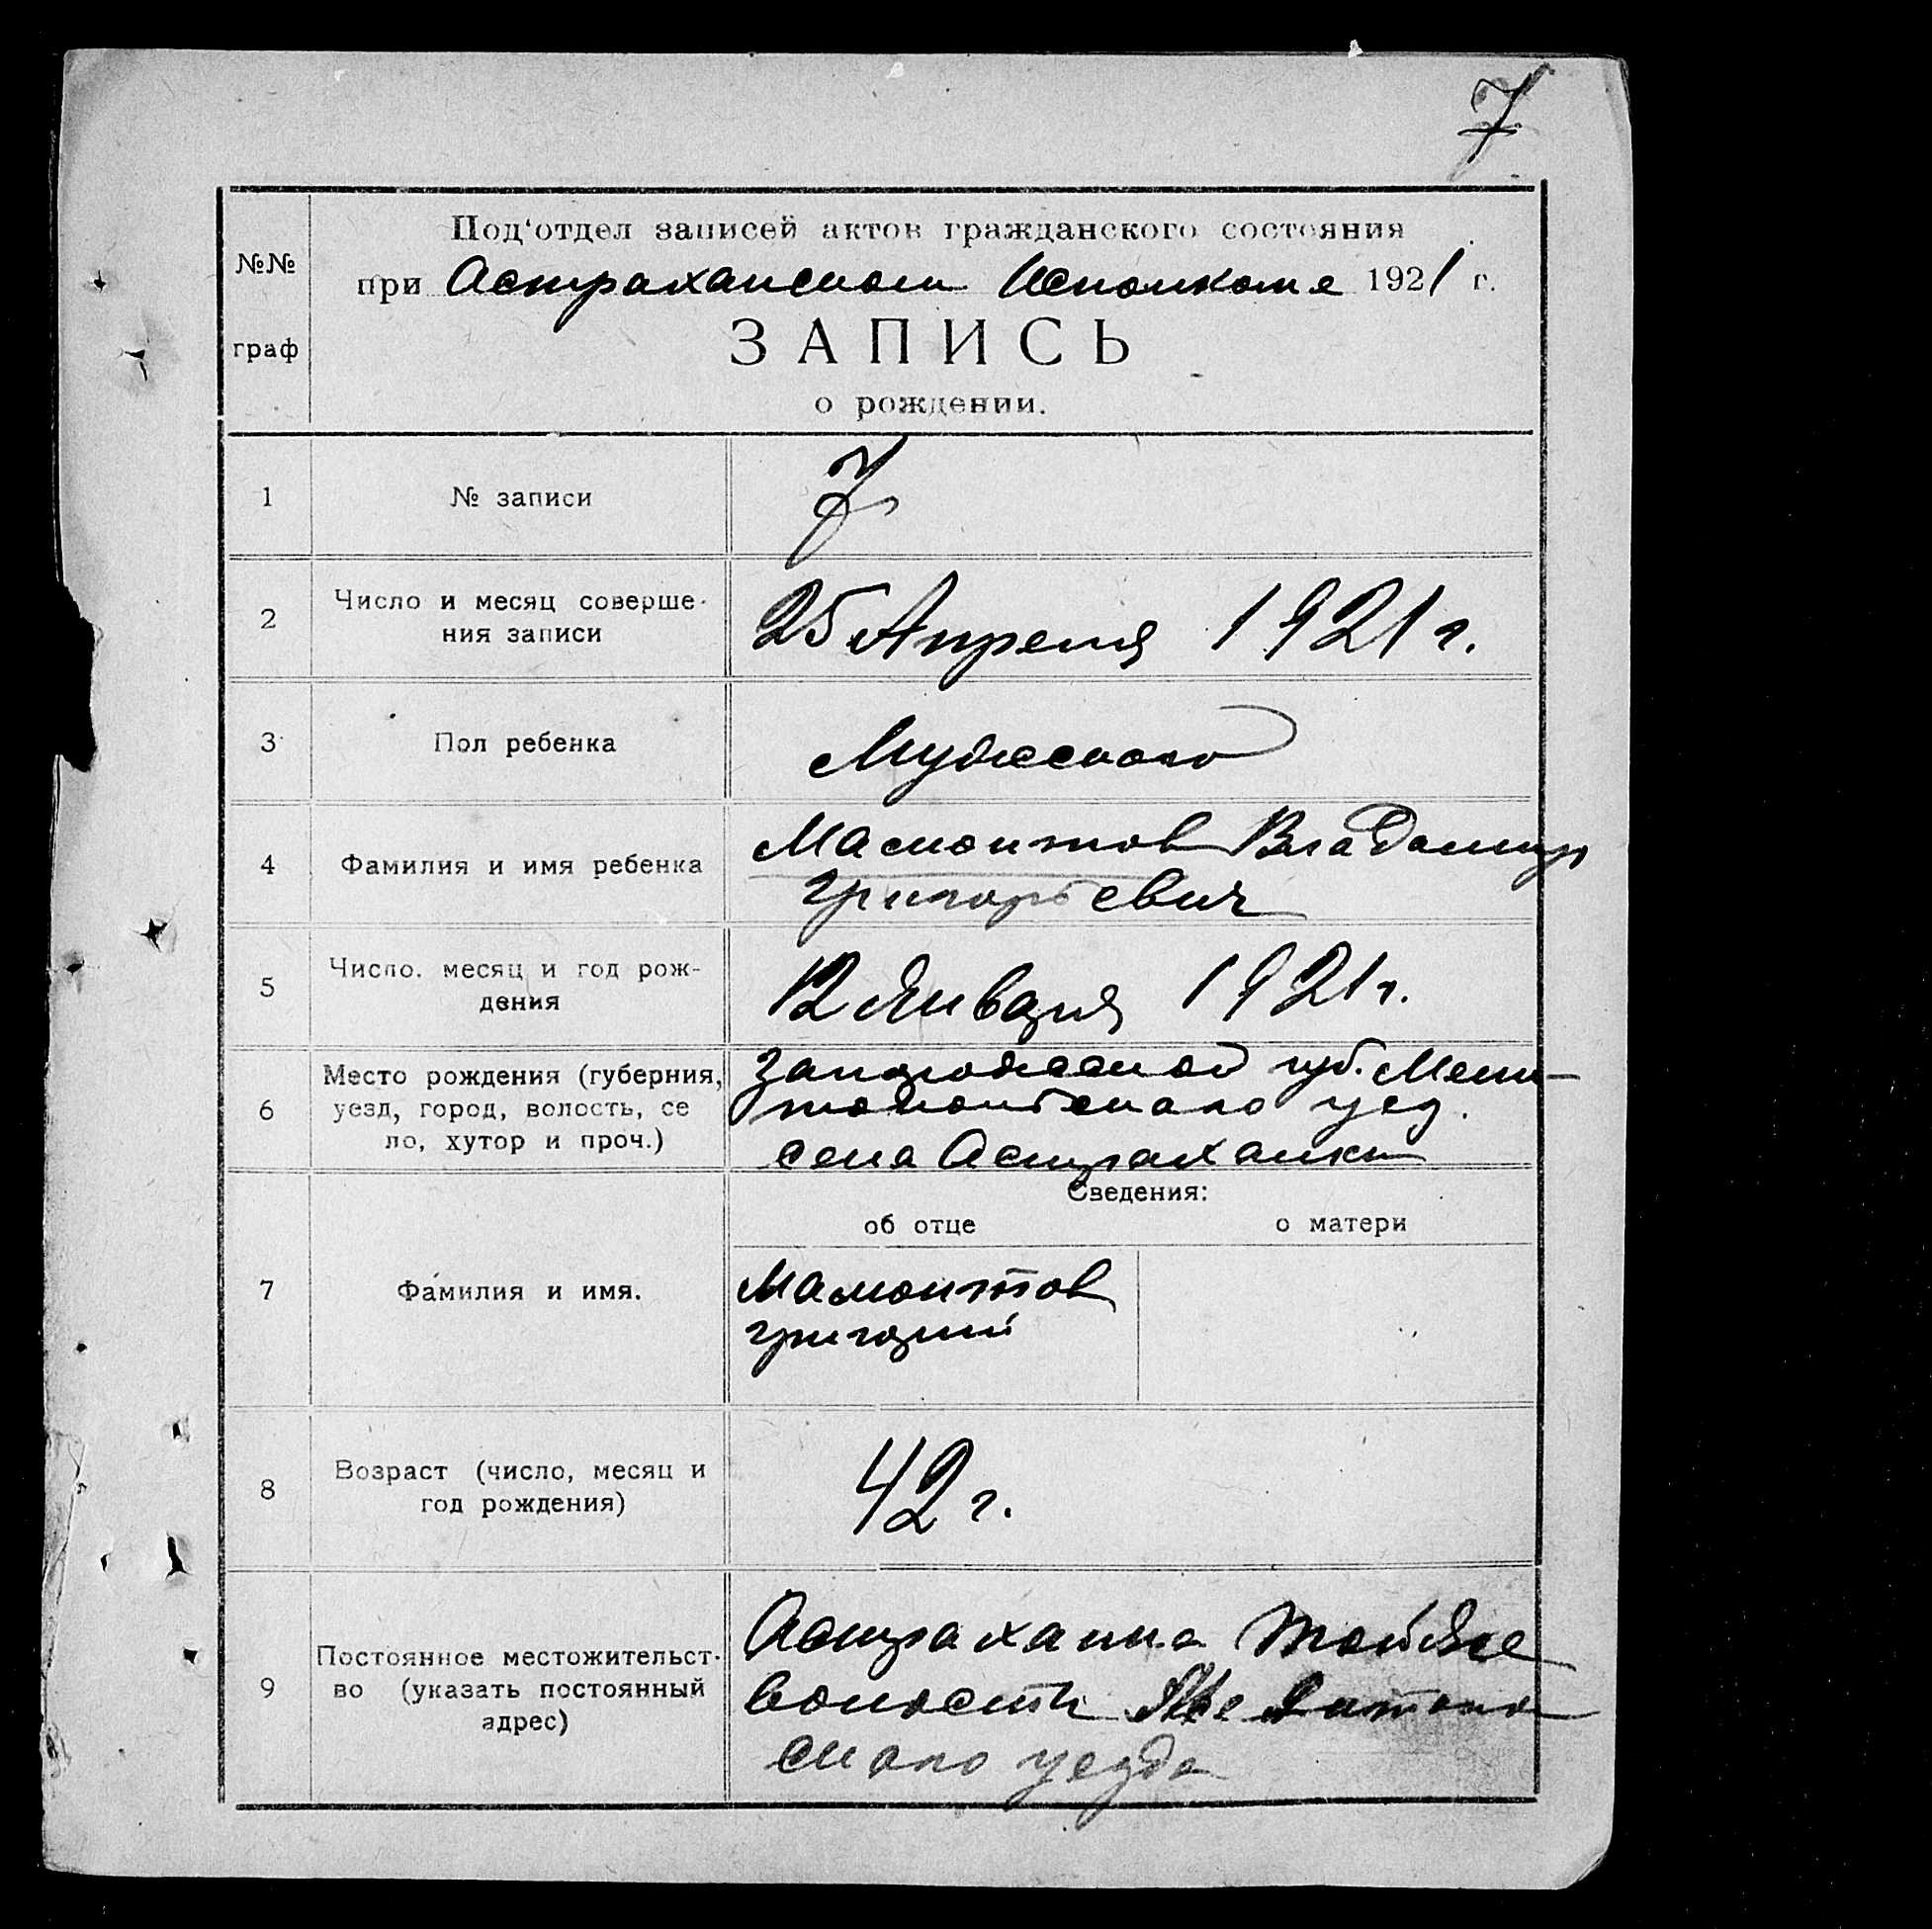 7
Под‘отдел записей актов гражданского состояния
при Астраханском Исполкоме 1921 г.
№№
граф
ЗАПИСЬ
о рождении.
1
№ записи
7
2
Число и месяц соверше-
ния записи
25 Апреля 1921 г.
3
Пол ребенка
Мужского
4
Фамилия и имя ребенка
Мамонтов Владимир
Григорьевич
5
Число. месяц и год рож-
дения
12 Января 1921 г.
6
Место рождения (губерния,
уезд, город, волость, се
ло, хутор и проч.)
Запорожской губ. Мели-
топольского уез.
села Астраханки
Сведения:
об отце
о матери
7
Фамилия и имя.
Мамонтов
Григорий
8
Возраст (число, месяц и
год рождения)
42 г.
9
Постоянное местожительст-
во (указать постоянный
адрес)
Астраханка той же
волости
ского уезда